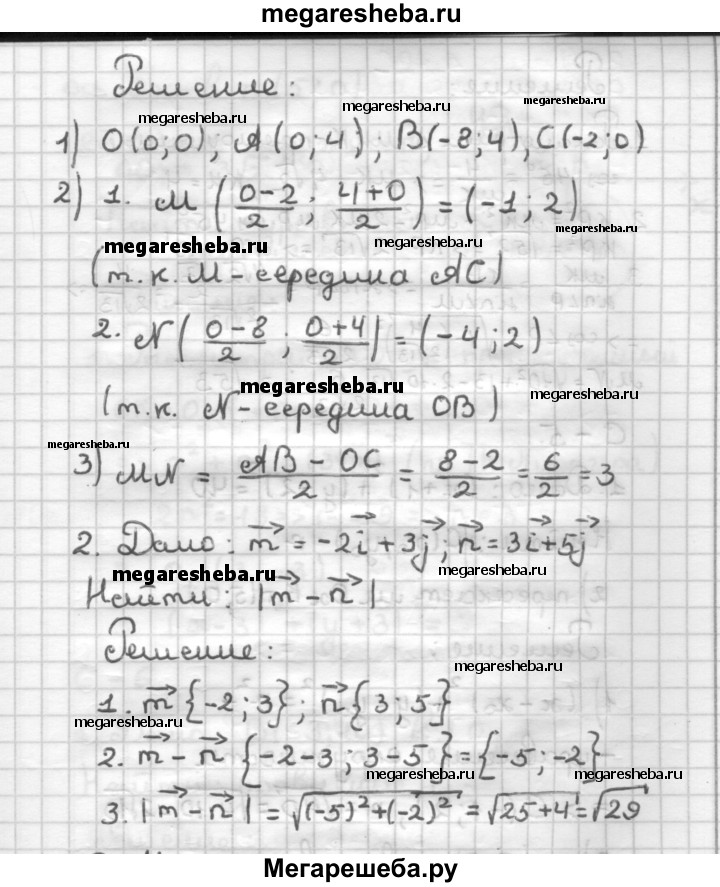 megaresheba.ru
Решение:
megaresheba.ru megaresheba.ru megaresheba.ru
1) O(0;0), A(0;4), B(-8;4), C(-2;0)
2) 1. M (0-2/2; 4+0/2) = (-1; 2)
megaresheba.ru megaresheba.ru megaresheba.ru
(т.к. M - середина AC)
2. N (0-8/2; 0+4/2) = (-4; 2)
megaresheba.ru megaresheba.ru
(т.к. N - середина OB)
megaresheba.ru
3) MN = AB - OC/2 = 8-2/2 = 6/2 = 3
2. Дано: m⃗ = -2i⃗ + 3j⃗; n⃗ = 3i⃗ + 5j⃗
megaresheba.ru megaresheba.ru
Найти: |m⃗ - n⃗|
Решение:
megaresheba.ru
1. m⃗ {-2; 3}; n⃗ {3; 5}
megaresheba.ru
2. m⃗ - n⃗ {-2-3; 3-5} = {-5; -2}
megaresheba.ru megaresheba.ru
3. |m⃗ - n⃗| = √(-5)²+(-2)² = √25+4 = √29
Мегарешеба.ру